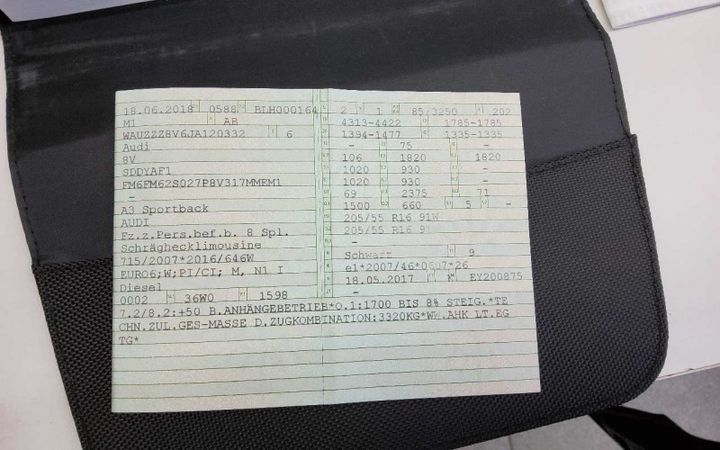 18.06.2018 0588 BLH000164
M1 AB
WAUZZZ8V6JA120332 6
Audi
8V
SDDYAF1
FM6FM62S027P8V317MMEM1
-
A3 Sportback
AUDI
Fz.z.Pers.bef.b. 8 Spl.
Schräghecklimousine
715/2007*2016/646W
EURO6;W;PI/CI; M, N1 I
Diesel
0002 36W0 1598
2 1 85/3250 202
4313-4422 1785-1785
1394-1477 1335-1335
- 75 -
106 1820 1820
1020 930 -
1020 930 -
69 2375 71
1500 660 5 -
205/55 R16 91W
205/55 R16 91
-
Schwarz 9
e1*2007/46*0607*26
18.05.2017 K EY200875
-
7.2/8.2:+50 B.ANHÄNGEBETRIEB*O.1:1700 BIS 8% STEIG.*TE
CHN.ZUL.GES-MASSE D.ZUGKOMBINATION:3320KG*WW.AHK LT.EG
TG*